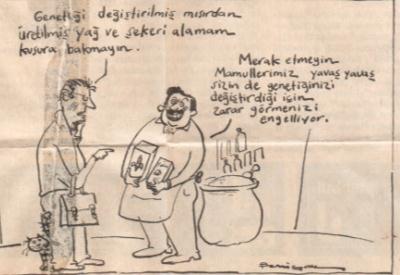 Genetiği değiştirilmiş mısırdan
üretilmiş yağ ve şekeri alamam
kusura bakmayın.
Merak etmeyin
Mamullerimiz yavaş yavaş
sizin de genetiğinizi
değiştirdiği için
zarar görmenizi
engelliyor.